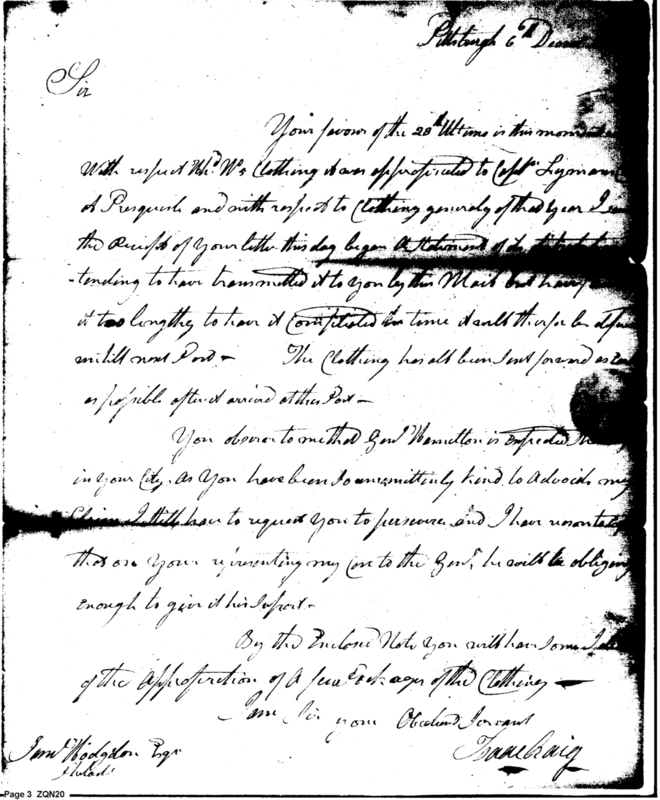 Pittsburgh 6th Decem
Sir
Your favour of the 28th Ultimo is this moment
With respect to No 5 Clothing it was appropriated to Captn Lyman
at Presquisle and with respect to Clothing generaly of that Year I
the Receipt of Your letter this day began a Statement of
-tending to have transmitted it to You by this Mail but have
it too lengthy to have it Compleated in time it will therefor be
untill next Post - The Clothing has all been sent forward as
as possible after it arrived at this Post -
You observe to me that Genl Hamilton is Expected
in Your City. As You have been so unremittinly kind to Advocate my
Claim I still have to request You to persevere and I have
that on Your representing my Case to the Genl he will be obliging
enough to give it his Suport -
By the Enclosed Note You will have some
of the Appropriation of A few Packages of the Clothing -
I am Sir
your Obedient Servant
Saml Hodgdon Esqr
Philada
Isaac Craig
Page 3 ZQN20